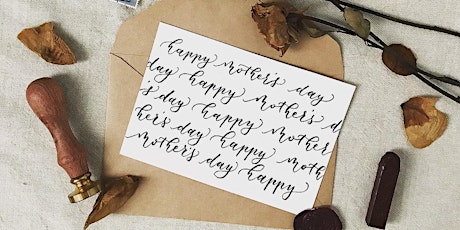 happy mother's day
day happy mother's day
's day happy mother
her's day happy moth
mother's day happy